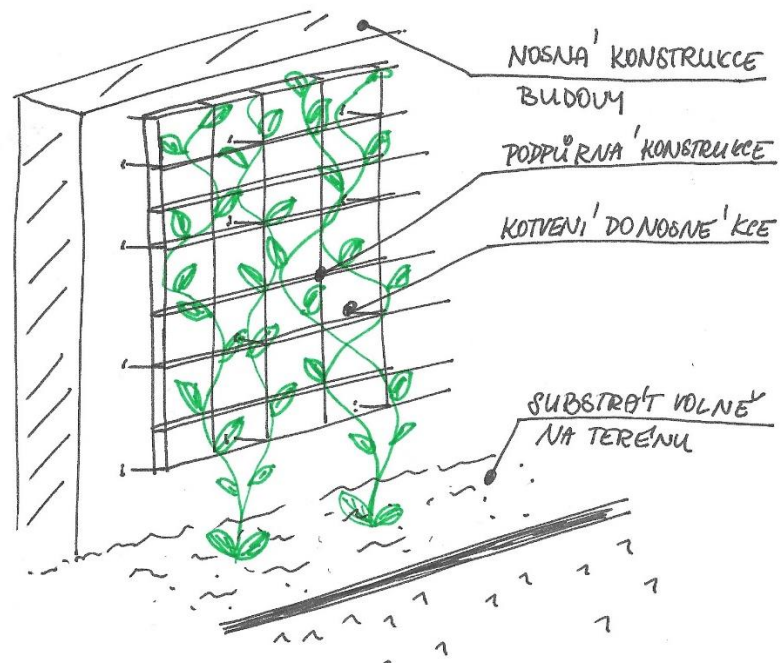 NOSNÁ KONSTRUKCE
BUDOVY
PODPŮRNÁ KONSTRUKCE
KOTVENÍ DO NOSNÉ KCE
SUBSTRÁT VOLNĚ
NA TERÉNU